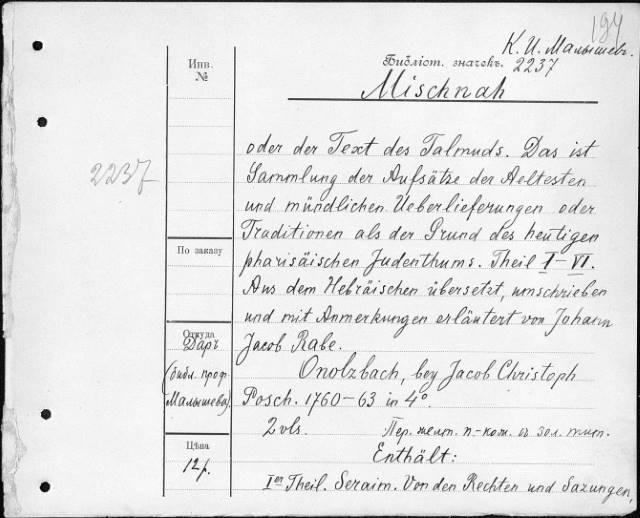 194
К. И. Малышевъ.
Библіот. значекъ. 2237
Mischnah
Инв.
№
2237
oder der Text des Talmuds. Das ist
Sammlung der Aufsätze der Aeltesten
und mündlichen Ueberlieferungen oder
Traditionen als der Grund des heutigen
pharisäischen Judenthums. Theil I–VI.
Aus dem Hebräischen übersetzt, umschrieben
und mit Anmerkungen erläutert von Johann
Jacob Rabe.
Onolzbach, bey Jacob Christoph
Posch. 1760–63 in 4°.
2 vls.
Пер. желт. п.-кож. съ зол. тит.
Enthält:
Ier Theil. Seraim. Von den Rechten und Sazungen,
По заказу
Откуда
Даръ
(библ. проф.
Малышева).
Цѣна
12 р.